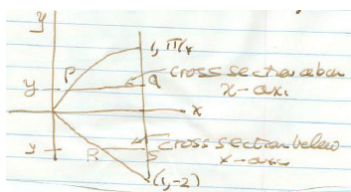 y
1, π/4
P
y
Q
cross section above
x-axis
x
y
R
S
cross section below
x-axis
(1,-2)